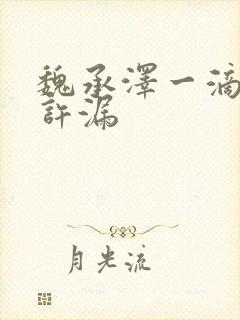 魏承澤一滴
許漏
月光流